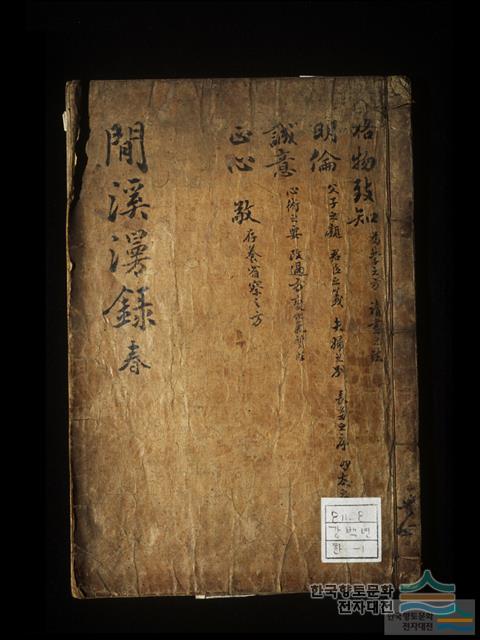 格物致知 為學之方 讀書之法
明倫 父子之親 君臣之義 夫婦之別 長幼之序
誠意 心術之要 改過
正心 敬 存養省察之方
閒溪漫錄 春
강백년
한 -1
한국향토문화
전자대전
한국향토문화
전자대전